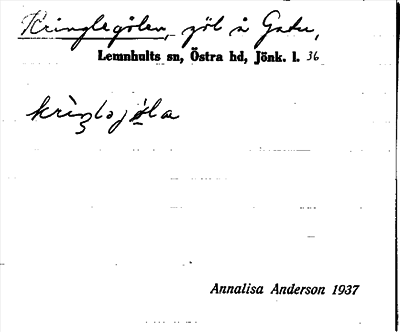 Kringlegölen, göl å Gatu,
Lemnhults sn, Östra hd, Jönk. l. 36
krìŋləjöla
Annalisa Anderson 1937